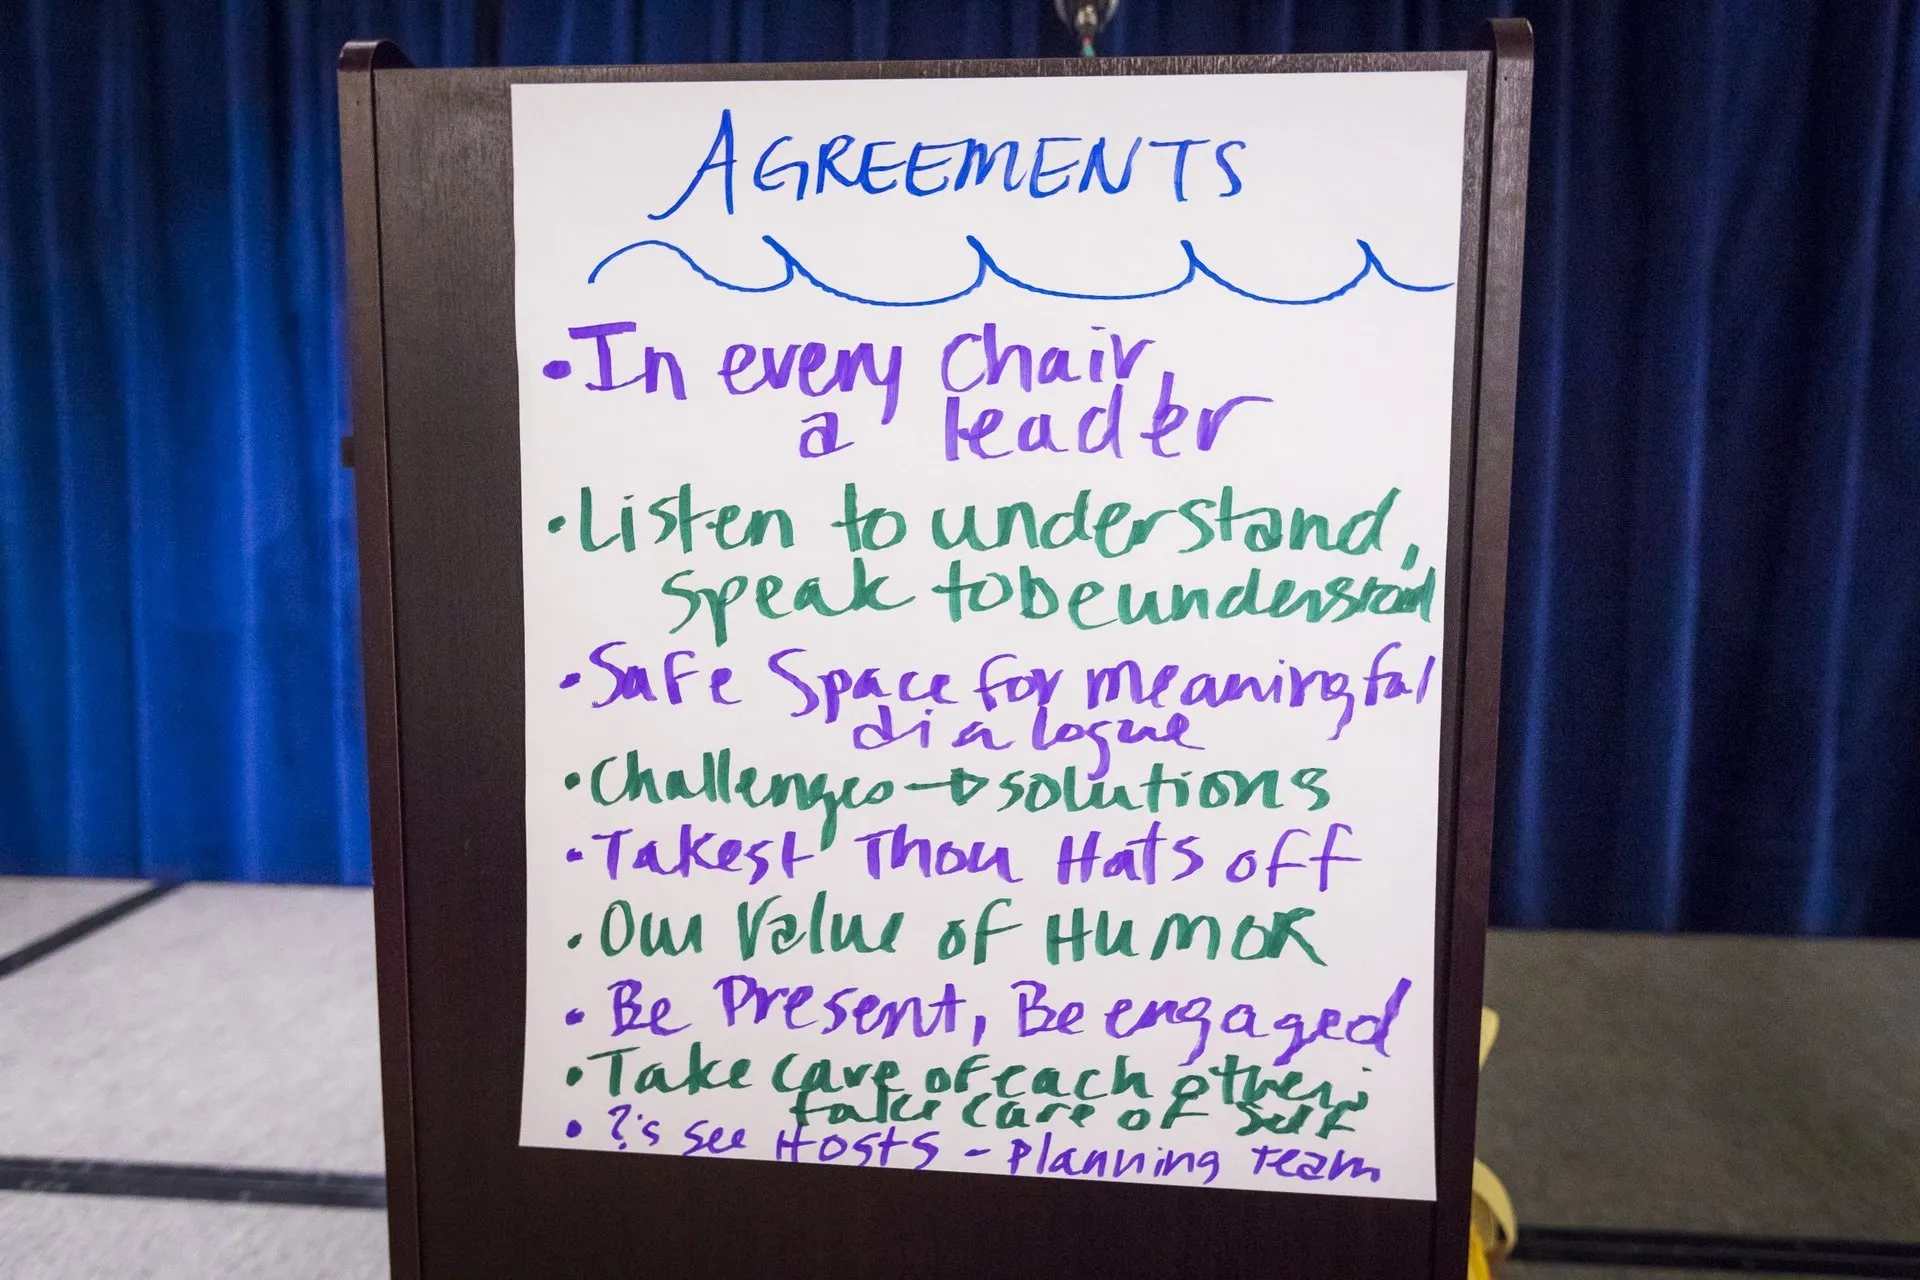 AGREEMENTS
• In every Chair,
a leader
• Listen to understand,
speak to be understood
• Safe Space for meaningful
dialogue
• Challenges → solutions
• Takest Thou Hats off
• Our Value of HUMOR
• Be Present, Be engaged
• Take care of each other;
take care of self
• ?'s see Hosts - Planning Team